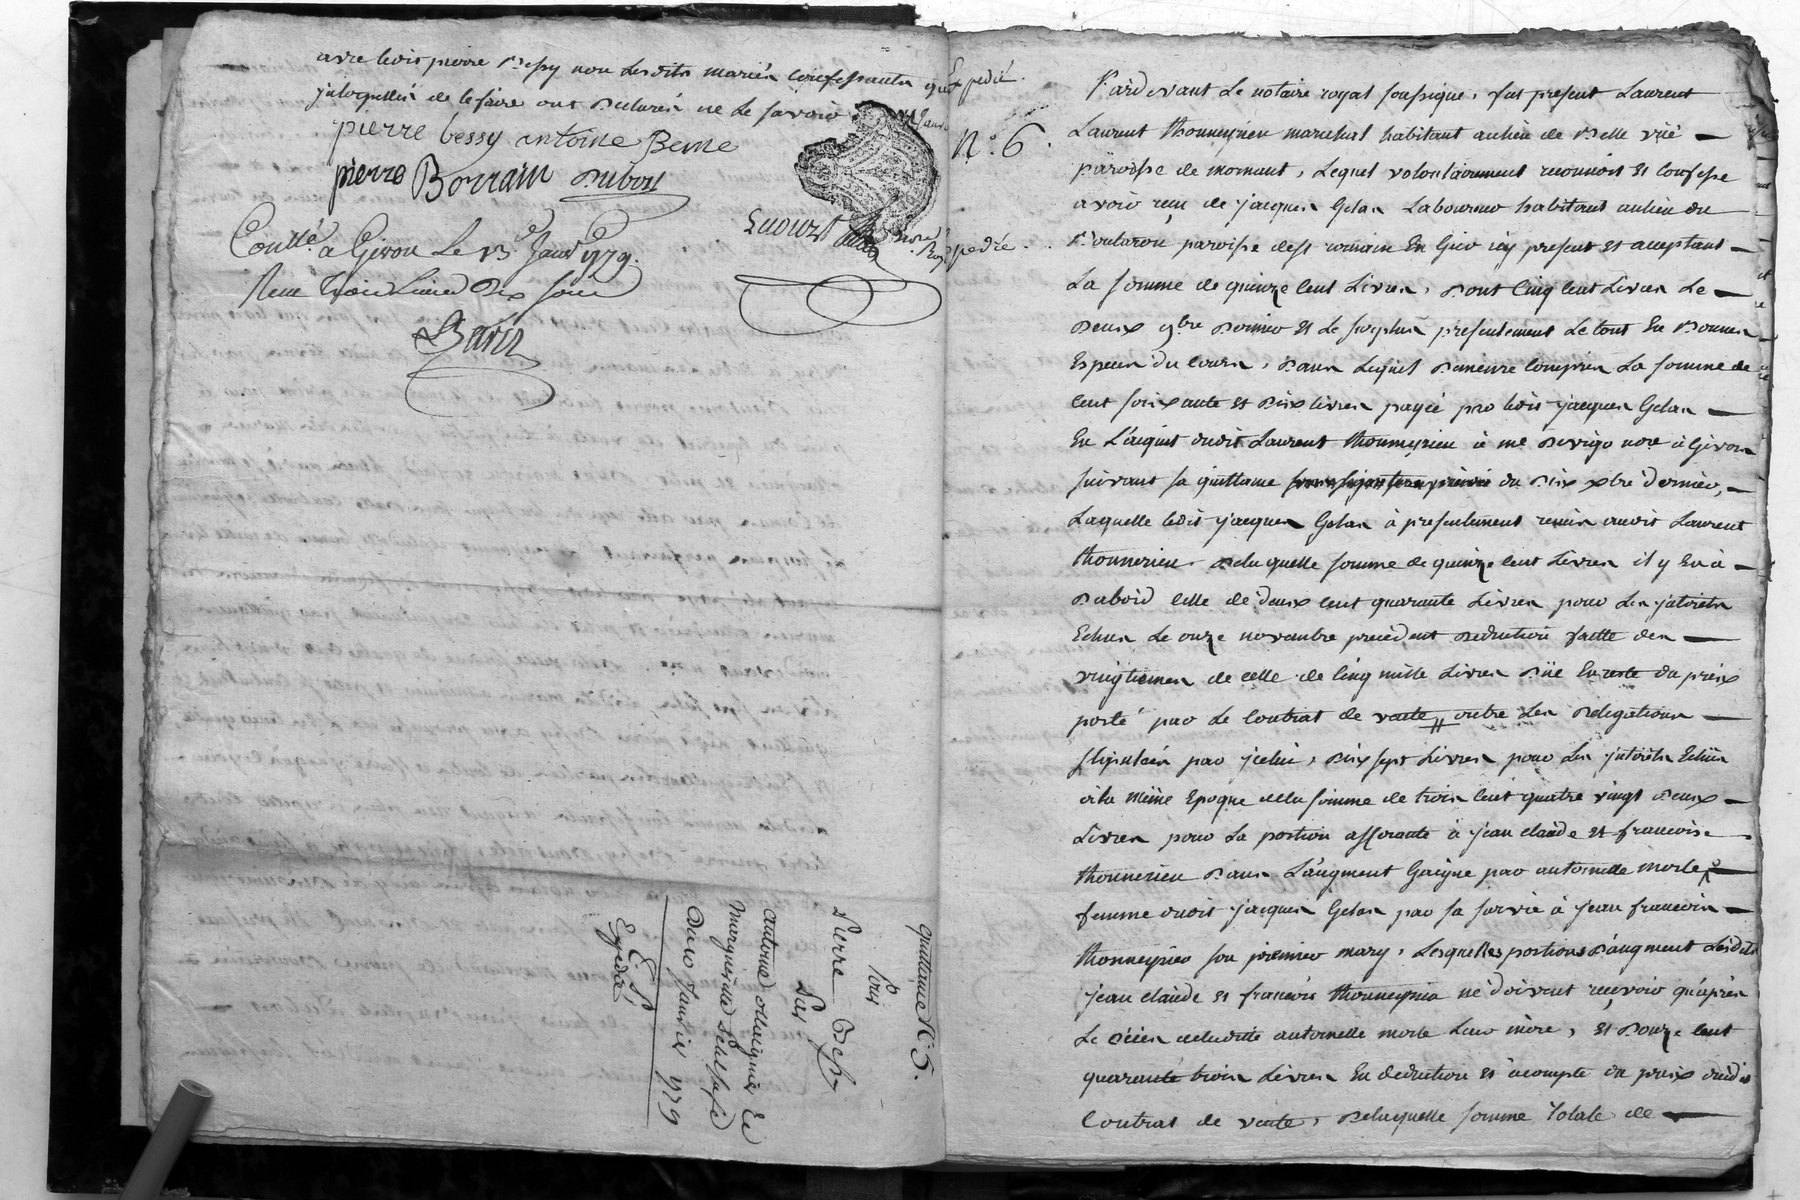 avec ledit pierre Bessy non lesdits mariés confessants qui
jnterpellés de le faire ont declarés ne le savoir
pierre bessy antoine Berne
pierre Borrain Dubost
Contlé à Givors Le 13e Janvr 1779.
Reçu treize Livres Dix sous
Expedié
N.º 6.
Expedié.
quittance N 5.
Pour
Pierre Bessy
Par
antoine
Marguerite
Du 10 Janvier 1779
E. S.
Expedié
Pardevant Le notaire royal soussigné, fut present Laurent
Laurent thonneyrieu marechal habitant au lieu de Belle vüe
paroisse de mornant, Lequel volontairement reconnoit et confesse
avoir reçu de jacques Gelas Laboureur habitant au lieu du
paroisse de st romain En Gier icy present et acceptant
La somme de quinze cent Livres, Dont Cinq cent Livres Le
Deux 9bre Dernier et Le surplus presentement Le tout En Bonnes
Especes du Cours, Dans Lequel Demeure Compris La somme de
cent soixante et Dix livres payée par ledit jacques Gelas
En L'acquit dudit Laurent thonneyrieu à me Devigo nore à Givors
suivant sa quittance du Dix xbre dernier,
Laquelle ledit jacques Gelas à presentement remis audit Laurent
thonnerieu. De laquelle somme de quinze cent Livres il y En à
D'abord celle de deux cent quarante Livres pour Les jnterets
Echus Le onze novembre precedent deduction faitte des
vingtiemes de celle de Cinq mille Livres Düe En reste du prix
porté par Le Contrat de vente outre Les Deligations
stipulées par jcelui, Dix sept Livres pour Les jnterets Echus
à la même Epoque de la somme de trois cent quatre vingt Deux
Livres pour La portion afferante à jean claude et francoise
thonnerieu Dans L'augment Gaigné par antoinette morle
femme dudit jacques Gelas par sa survie à jean francois
thonneyrieu son premier mary, Lesquelles portions D'augment Lesdits
jean claude et francois thonneyrieu ne doivent recevoir qu'après
Le Décés de ladite antoinette morle Leur mère, et Douze cent
quarante trois Livres En deduction et à compte du prix dudit
Contrat de vente, De laquelle somme totale de